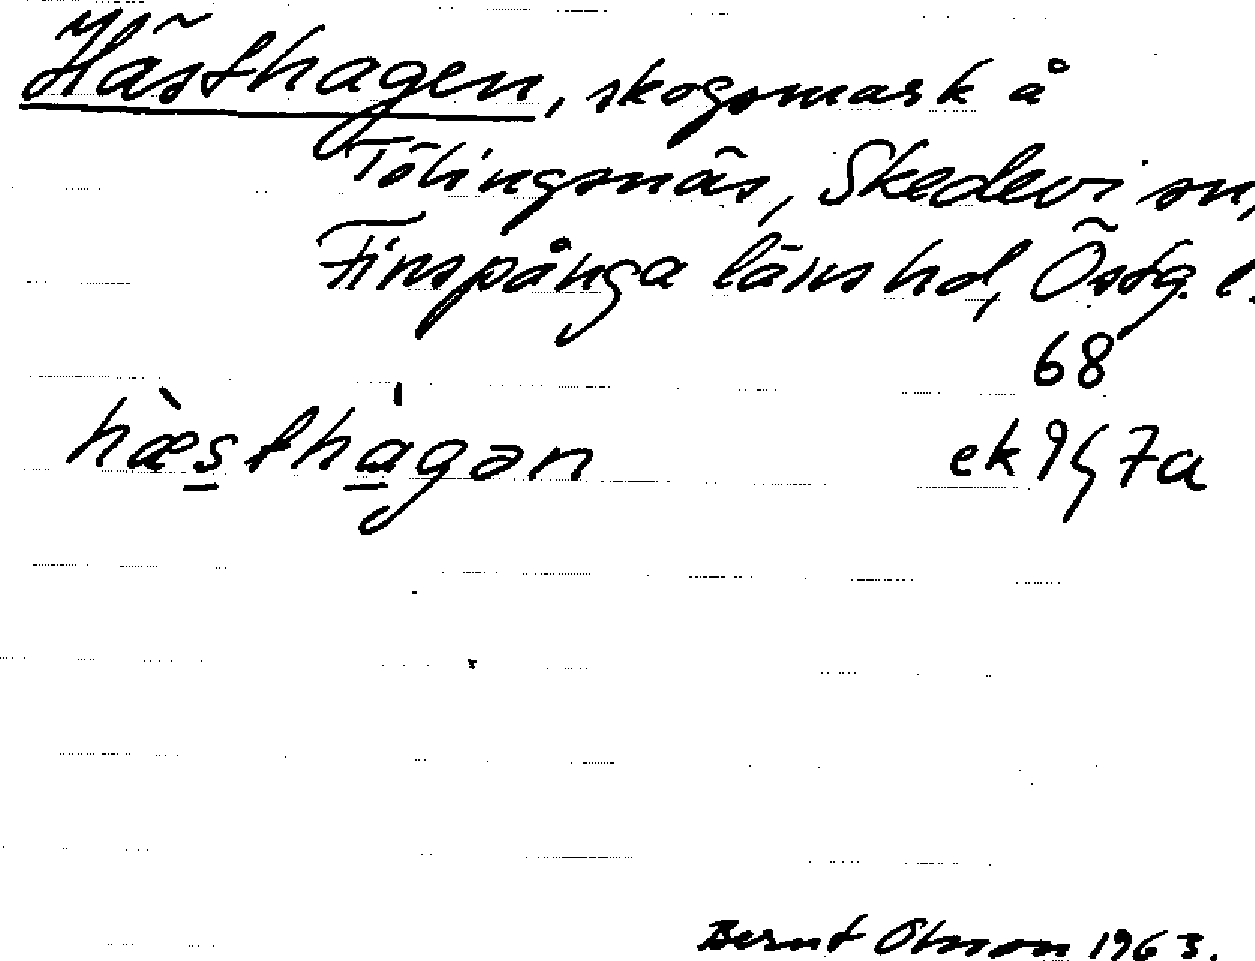 Hästhagen, skogsmark å
Tölingsnäs, Skedevi sn,
Finspånga läns hd, Östg. l.
68
hæ̀sthàgən ek 9G 7a
Bernt Olsson 1963.